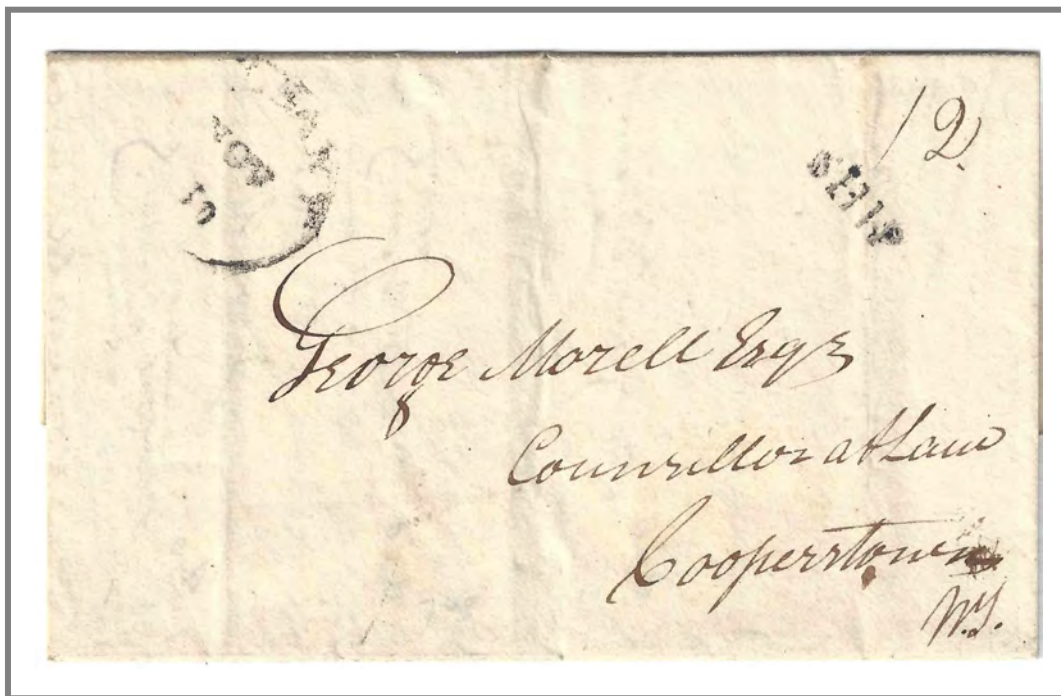 NOV
10
12
SHIP
George Morell Esqr
Counsellor at Law
Cooperstown
N.Y.